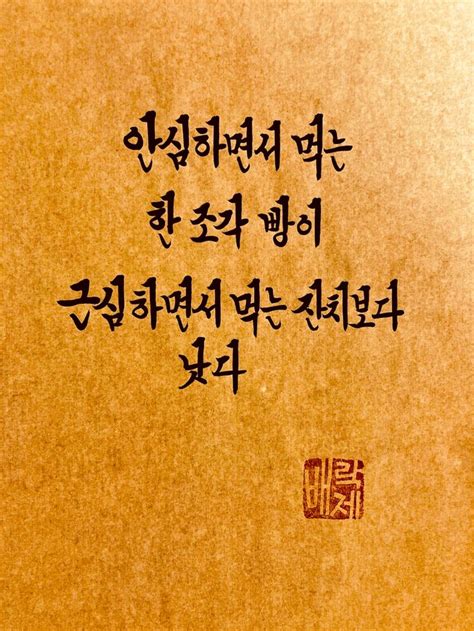 안심하면서 먹는
한 조각 빵이
근심하면서 먹는 잔치보다
낫다
배락제